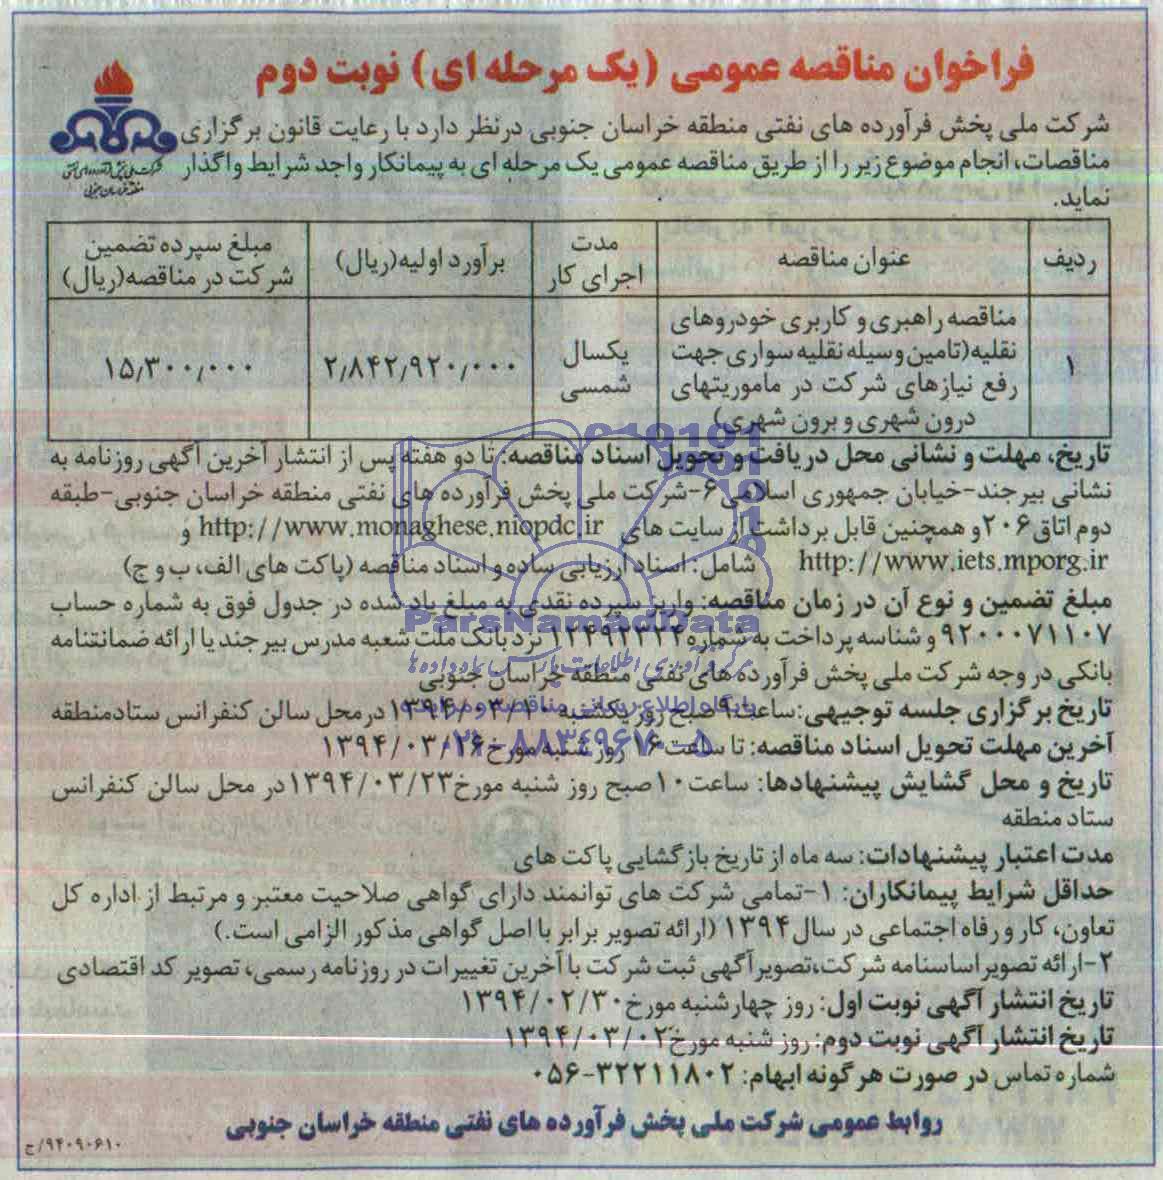 فراخوان مناقصه عمومی (یک مرحله ای) نوبت دوم
شرکت ملی پخش فرآورده های نفتی منطقه خراسان جنوبی درنظر دارد با رعایت قانون برگزاری
مناقصات، انجام موضوع زیر را از طریق مناقصه عمومی یک مرحله ای به پیمانکار واجد شرایط واگذار
نماید.
شرکت ملی پخش فرآورده های نفتی
منطقه خراسان جنوبی
ردیف عنوان مناقصه مدت اجرای کار برآورد اولیه(ریال) مبلغ سپرده تضمین شرکت در مناقصه(ریال)
۱ مناقصه راهبری و کاربری خودروهای نقلیه(تامین وسیله نقلیه سواری جهت رفع نیازهای شرکت در ماموریتهای درون شهری و برون شهری) یکسال شمسی ۲٫۸۴۲٫۹۲۰٫۰۰۰ ۱۵٫۳۰۰٫۰۰۰
تاریخ، مهلت و نشانی محل دریافت و تحویل اسناد مناقصه: تا دو هفته پس از انتشار آخرین آگهی روزنامه به
نشانی بیرجند-خیابان جمهوری اسلامی۶-شرکت ملی پخش فرآورده های نفتی منطقه خراسان جنوبی-طبقه
دوم اتاق۲۰۶ و همچنین قابل برداشت از سایت های http://www.monaghese.niopdc.ir و
http://www.iets.mporg.ir شامل: اسناد ارزیابی ساده و اسناد مناقصه (پاکت های الف، ب و ج)
مبلغ تضمین و نوع آن در زمان مناقصه: واریز سپرده نقدی به مبلغ یاد شده در جدول فوق به شماره حساب
۹۲۰۰۰۷۱۱۰۷ و شناسه پرداخت به شماره۱۲۴۹۲۳۲۴ نزد بانک ملت شعبه مدرس بیرجند یا ارائه ضمانتنامه
بانکی در وجه شرکت ملی پخش فرآورده های نفتی منطقه خراسان جنوبی
تاریخ برگزاری جلسه توجیهی:ساعت۹صبح روز یکشنبه ۱۳۹۴/۰۳/۱۰ درمحل سالن کنفرانس ستادمنطقه
آخرین مهلت تحویل اسناد مناقصه: تا ساعت۱۶ روز شنبه مورخ ۱۳۹۴/۰۳/۲۶
تاریخ و محل گشایش پیشنهادها: ساعت۱۰صبح روز شنبه مورخ۱۳۹۴/۰۳/۲۳ در محل سالن کنفرانس
ستاد منطقه
مدت اعتبار پیشنهادات: سه ماه از تاریخ بازگشایی پاکت های
حداقل شرایط پیمانکاران: ۱-تمامی شرکت های توانمند دارای گواهی صلاحیت معتبر و مرتبط از اداره کل
تعاون، کار و رفاه اجتماعی در سال۱۳۹۴ (ارائه تصویر برابر با اصل گواهی مذکور الزامی است.)
۲-ارائه تصویر اساسنامه شرکت،تصویرآگهی ثبت شرکت با آخرین تغییرات در روزنامه رسمی، تصویر کد اقتصادی
تاریخ انتشار آگهی نوبت اول: روز چهارشنبه مورخ۱۳۹۴/۰۲/۳۰
تاریخ انتشار آگهی نوبت دوم: روز شنبه مورخ۱۳۹۴/۰۳/۰۲
شماره تماس در صورت هرگونه ابهام: ۳۲۲۱۱۸۰۲-۰۵۶
روابط عمومی شرکت ملی پخش فرآورده های نفتی منطقه خراسان جنوبی
۹۴۰۹۰۶۱۰/ج
ParsNamadData
مرکز فن آوری اطلاعات پارس نماد داده ها
پایگاه اطلاع رسانی مناقصه و مزایده
۰۲۱-۸۸۳۴۹۶۷۰-۵